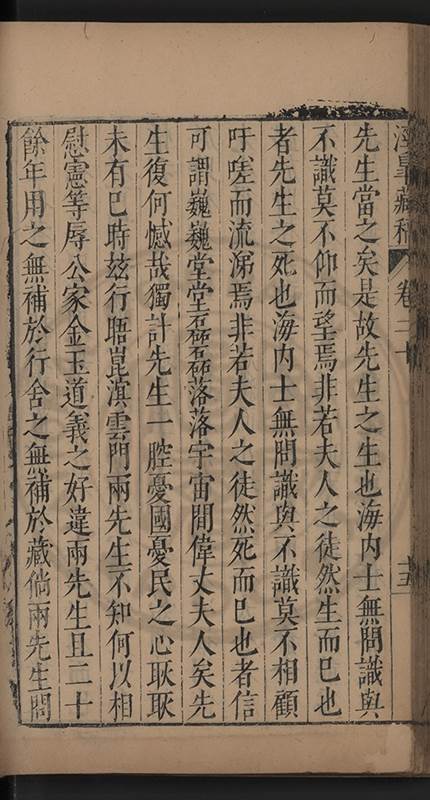 涇皐藏稿 卷二十 十五
先生當之矣是故先生之生也海内士無問識與
不識莫不仰而望焉非若夫人之徒然生而已也
者先生之死也海内士無問識與不識莫不相顧
吁嗟而流涕焉非若夫人之徒然死而已也者信
可謂巍巍堂堂磊磊落落宇宙間偉丈夫人矣先
生復何憾哉獨計先生一腔憂國憂民之心耿耿
未有已時玆行晤崑溟雲門兩先生不知何以相
慰憲等辱公家金玉道義之好違兩先生且二十
餘年用之無補於行舍之無補於藏倘兩先生問